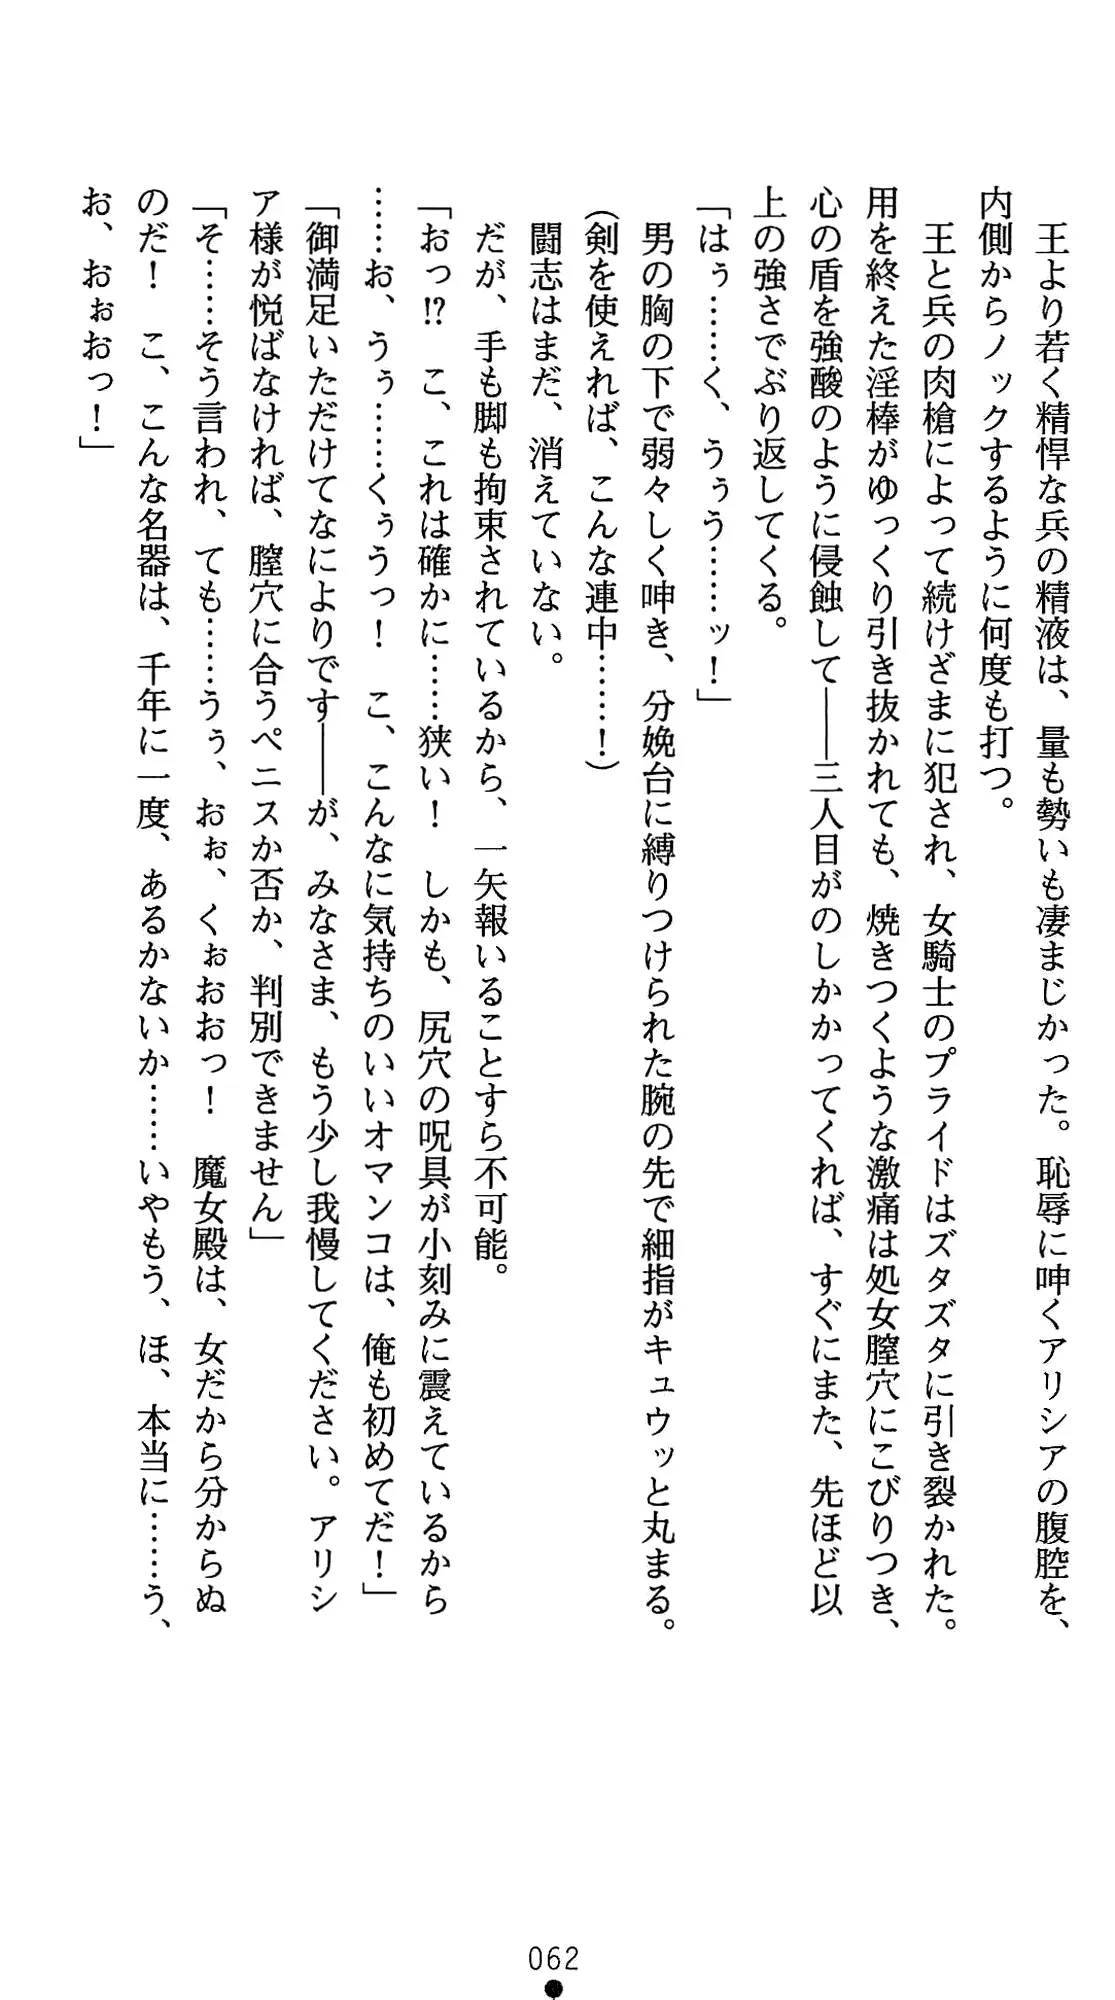 王より若く精悍な兵の精液は、量も勢いも凄まじかった。恥辱に呻くアリシアの腹腔を、
内側からノックするように何度も打つ。
王と兵の肉槍によって続けざまに犯され、女騎士のプライドはズタズタに引き裂かれた。
用を終えた淫棒がゆっくり引き抜かれても、焼きつくような激痛は処女膣穴にこびりつき、
心の盾を強酸のように侵蝕して――三人目がのしかかってくれば、すぐにまた、先ほど以
上の強さでぶり返してくる。
「はぅ……く、うぅう……ッ！」
男の胸の下で弱々しく呻き、分娩台に縛りつけられた腕の先で細指がキュウッと丸まる。
（剣を使えれば、こんな連中……！）
闘志はまだ、消えていない。
だが、手も脚も拘束されているから、一矢報いることすら不可能。
「おっ⁉　こ、これは確かに……狭い！　しかも、尻穴の呪具が小刻みに震えているから
……お、うぅ……くぅうっ！　こ、こんなに気持ちのいいオマンコは、俺も初めてだ！」
「御満足いただけてなによりです――が、みなさま、もう少し我慢してください。アリシ
ア様が悦ばなければ、膣穴に合うペニスか否か、判別できません」
「そ……そう言われ、ても……うぅ、おぉ、くぉおおっ！　魔女殿は、女だから分からぬ
のだ！　こ、こんな名器は、千年に一度、あるかないか……いやもう、ほ、本当に……う、
お、おぉおっ！」
062